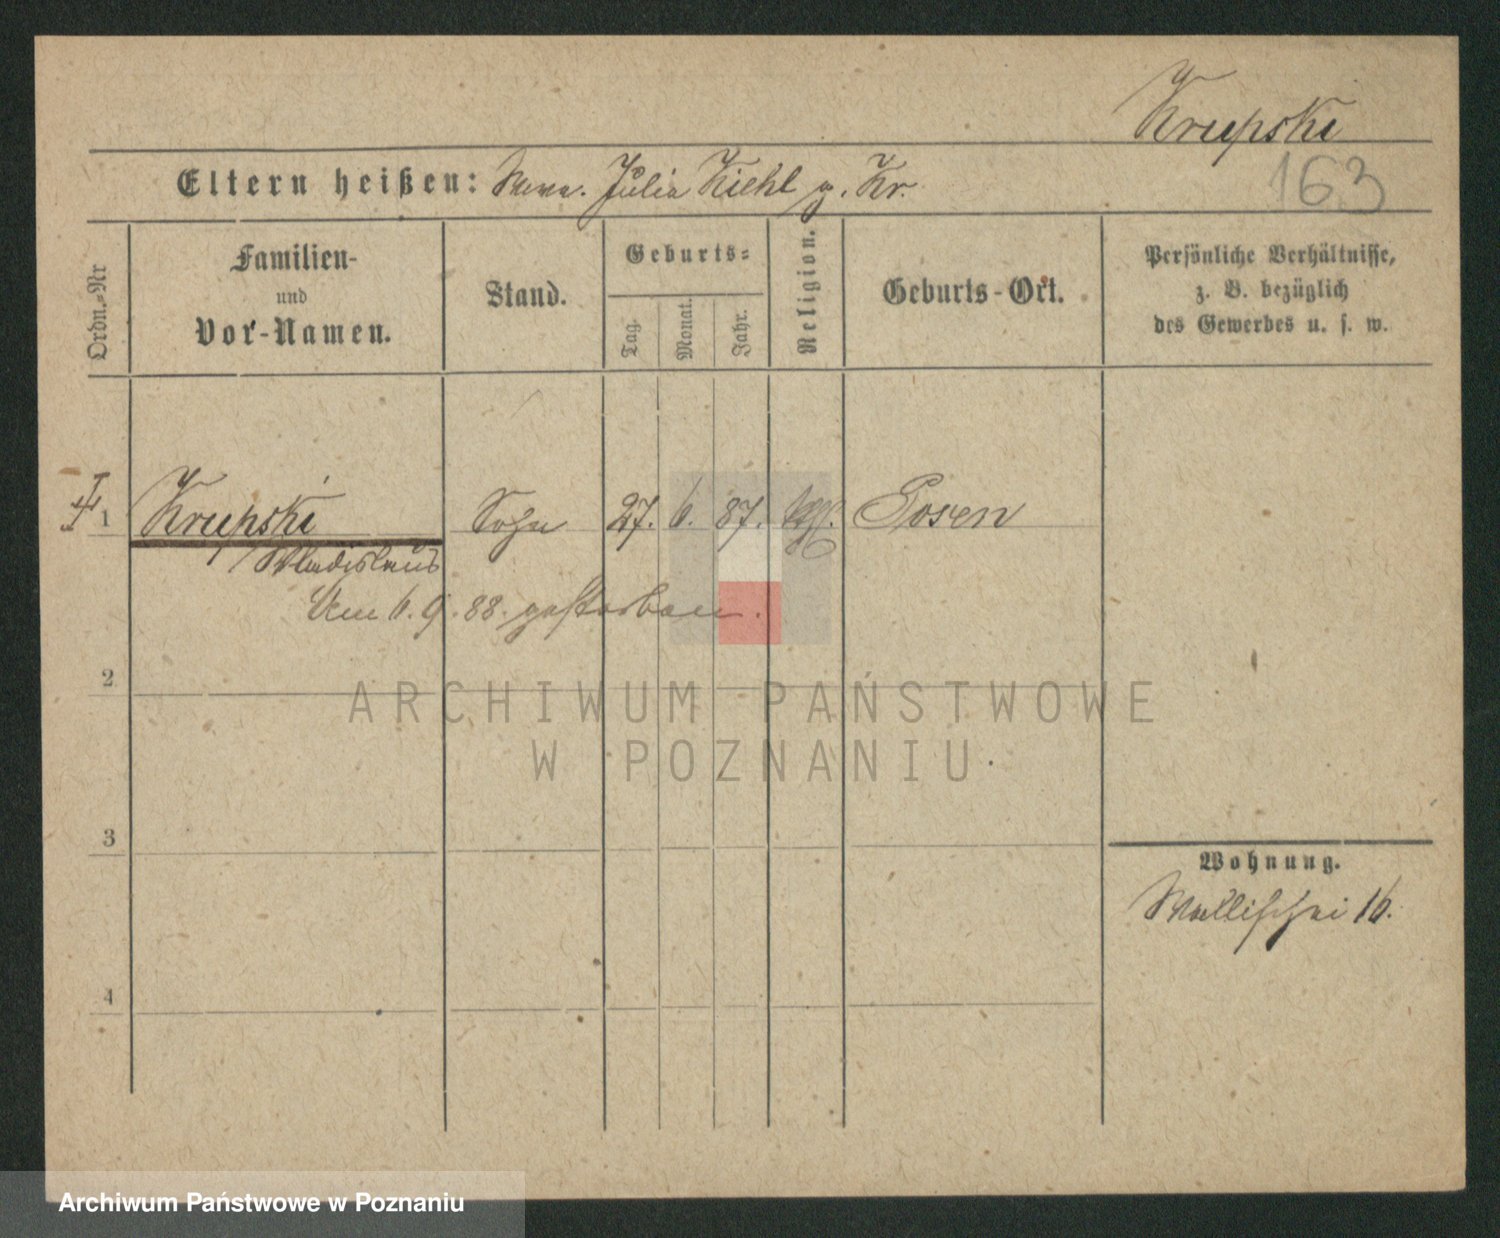 Krupski
163
Eltern heißen: Julia Kiehl g. Kr.
Ordn.-Nr
Familien-
und
Vor-Namen.
Stand.
Geburts-
Tag.
Monat.
Jahr.
Religion.
Geburts-Ort.
Persönliche Verhältnisse,
z. B. bezüglich
des Gewerbes u. s. w.
1 Krupski Sohn 27. 6. 87. Posen
Wladislaus
Am 6. 9. 88. gestorben.
2
3
4
Wohnung.
Wallischei 16.
ARCHIWUM PAŃSTWOWE
W POZNANIU
Archiwum Państwowe w Poznaniu